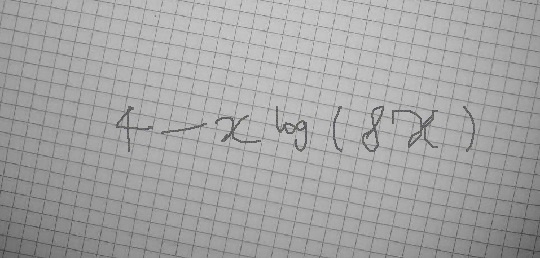 4 - x log ( 8x )